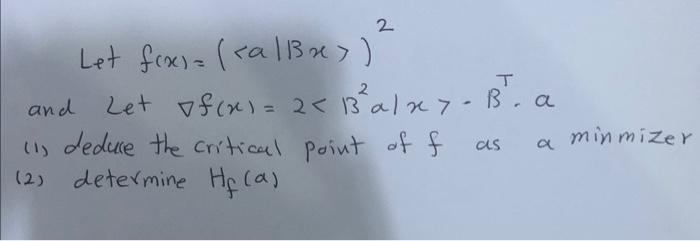 Let f(x) = (<a|Bx>)²
and Let ∇f(x) = 2<B²a|x> · Bᵀ. a
(1) deduce the critical point of f as a minmizer
(2) determine H_f(a)